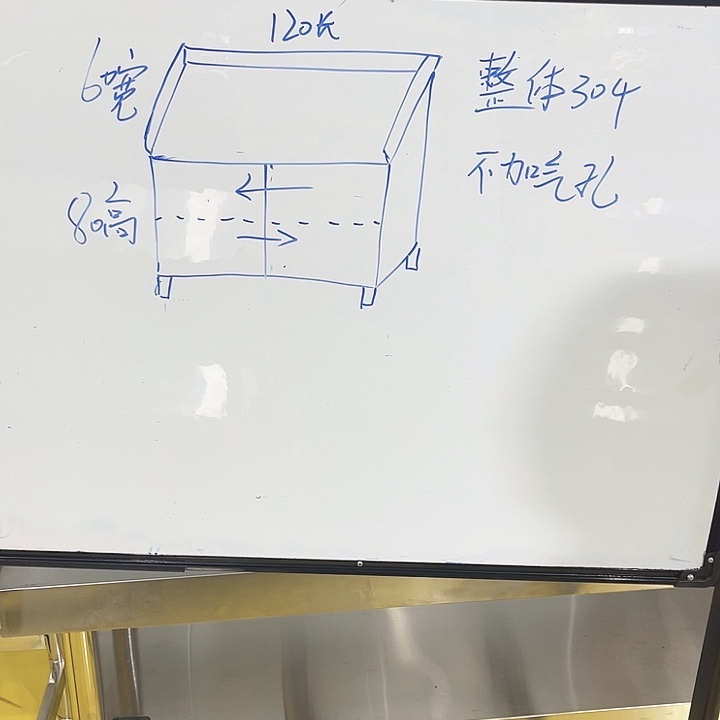 120长
6宽
整体304
不加气孔
80高